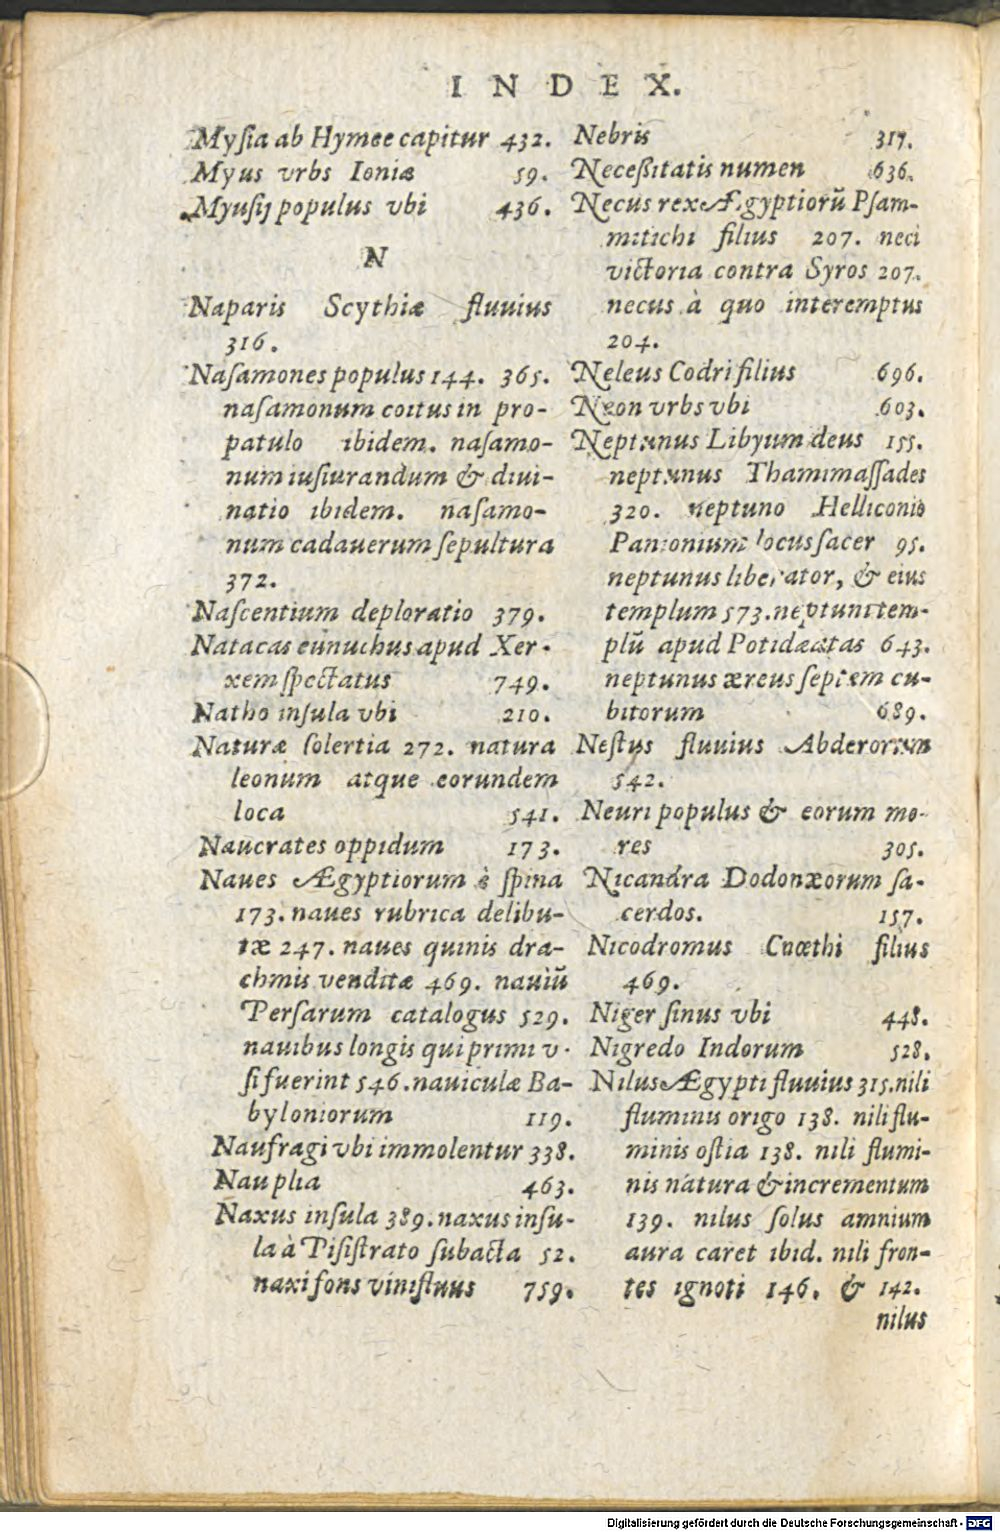 INDEX.
Myſia ab Hymee capitur 432.
Myus vrbs Ioniæ 59.
Myuſij populus vbi 436.
N
Naparis Scythiæ fluuius
316.
Naſamones populus 144. 365.
naſamonum coitus in pro-
patulo ibidem. naſamo-
num iuſiurandum & diui-
natio ibidem. naſamo-
num cadauerum ſepultura
372.
Naſcentium deploratio 379.
Natacas eunuchus apud Xer-
xem ſpectatus 749.
Natho inſula vbi 210.
Naturæ ſolertia 272. natura
leonum atque eorundem
loca 541.
Naucrates oppidum 173.
Naues Ægyptiorum è ſpina
173. naues rubrica delibu-
tæ 247. naues quinis dra-
chmis venditæ 469. nauiũ
Perſarum catalogus 529.
nauibus longis qui primi v-
ſi fuerint 546. nauiculæ Ba-
byloniorum 119.
Naufragi vbi immolentur 338.
Nauplia 463.
Naxus inſula 389. naxus inſu-
la à Piſiſtrato ſubacta 52.
naxi fons vinifluus 759.
Nebris 317.
Neceßitatis numen 636.
Necus rex Ægyptiorũ Pſam-
mitichi filius 207. neci
victoria contra Syros 207.
necus à quo interemptus
204.
Neleus Codri filius 696.
Neon vrbs vbi 603.
Neptunus Libyum deus 155.
neptunus Thamimaſſades
320. neptuno Helliconio
Panionium locus ſacer 95.
neptunus liberator, & eius
templum 573. neptuni tem-
plũ apud Potidæatas 643.
neptunus æreus ſeptem cu-
bitorum 689.
Neſtus fluuius Abderorum
542.
Neuri populus & eorum mo-
res 305.
Nicandra Dodonæorum ſa-
cerdos. 157.
Nicodromus Cnœthi filius
469.
Niger ſinus vbi 448.
Nigredo Indorum 528.
Nilus Ægypti fluuius 315. nili
fluminis origo 138. nili flu-
minis oſtia 138. nili flumi-
nis natura & incrementum
139. nilus ſolus amnium
aura caret ibid. nili fron-
tes ignoti 146. & 142.
nilus
Digitalisierung gefördert durch die Deutsche Forschungsgemeinschaft - DFG